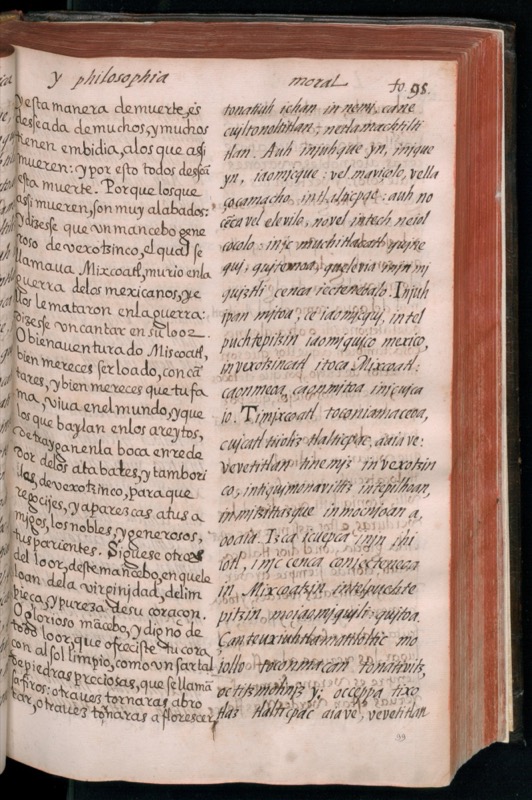 y philosophia
moral
fo. 98.
y esta manera de muerte, es
desseada de muchos, y muchos
tienen embidia, alos que assi
mueren: y por esto todos dessean
esta muerte. Porque los que
assi mueren, son muy alabados:
Y dizese que vn mancebo gene
roso de vexotzinco, el qual se
llamaua Mixcoatl, murio enla
guerra delos mexicanos, y e
llos le mataron enla guerra:
dizese vn cantar en su looz.
O bienauenturado Miscoatl,
bien mereces ser loado, con cã
tares, y bien mereces que tu fa
ma, viua enel mundo, y que
los que baylan enlos areytos,
te trayganenla boca en rede
dor delos atabales, y tambori
les, de vexotzinco, para que
regocijes, y aparezcas atus a
migos, los nobles, y generosos,
tus parientes. Siguese otro
del loor, deste mancebo, en que le
loan dela virginjdad, delim
pieça, y pureza de su coraçon.
O glorioso mãcebo, y digno de
todo loor, que ofreciste tu cora
con al sol limpio, como vn sartal
de piedras preciosas, que se llamã
safiros: otra vez tornaras abro
tar, otra vez tornaras a florescer
tonatiuh ichan in nemi, cane
cujltonoliztlan, netlamachtilti
tlan. Auh injuhque yn, inique
yn, iaomicque: vel maviçolo, vella
çocamacho, in tlalticpac: auh no
cẽca vel elevilo, no vel intech neiol
cocolo inje muchitlacatl
qui, quitemoa, quelevia injn mj
qujztli cenca iectenevalo. Injuh
ipan mjtoa, ce iaomjcqui, in tel
puchtepitzin iaomiquico mexico,
in vexotzincatl itoca Mixcoatl:
caonmeoa, caonmitoa injcujca
io. Timjxcoatl toconiamaceoa,
cujcatl tlalticpac, aaiave:
vevetitlan in vexotzin
co, intepilhoan,
in mocnjoan a,
ooaia. Izca icuepca injn chi
lotl, injc cenca
in Mixcoatzin, in telpuchte
pitzin, moiaomjqujli: qujtoa.
Can teuxiuhtlamatilolric mo
iollo toconmacan tonatiuh,
oc titzmolinjz y: occeppa tixo
tlaz tlalticpac aiave, vevetitlan